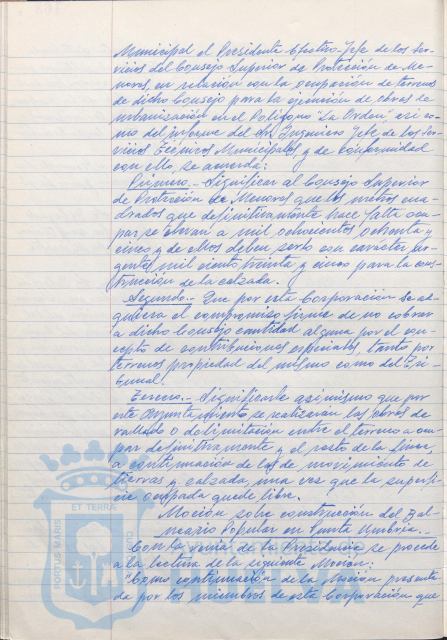 Municipal el Presidente Efectivo-Jefe de los Ser-
vicios del Consejo Superior de Protección de Me-
nores, en relación con la ocupación de terrenos
de dicho Consejo para la ejecución de obras de
urbanización en el Polígono "La Orden", así co-
mo del informe del Sr. Ingeniero Jefe de los Ser-
vicios Técnicos Municipales y de conformidad
con ello, se acuerda:
Primero.- Significar al Consejo Superior
de Protección de Menores que los metros cua-
drados que definitivamente hace falta ocu-
par se elevan a mil ochocientos ochenta y
cinco y de ellos deben serlo con carácter ur-
gente mil ciento treinta y cinco para la cons-
trucción de la calzada.
Segundo.- Que por esta Corporación se ad-
quiera el compromiso firme de no cobrar
a dicho Consejo cantidad alguna por el con-
cepto de contribuciones especiales, tanto por
terrenos propiedad del mismo como del Tri-
bunal.
Tercero.- Significarle asimismo que por
este Ayuntamiento se realizarán las obras de
vallado o delimitación entre el terreno a ocu-
par definitivamente y el resto de la finca,
a continuación de las de movimiento de
tierras y calzada, una vez que la superfi-
cie ocupada quede libre.
Moción sobre construcción del Bal-
neario Popular en Punta Umbría.-
Con la venia de la Presidencia se procede
a la lectura de la siguiente Moción:
"Como continuación de la Moción presenta-
da por los miembros de esta Corporación que
PORTUS MARIS
ET TERRAE